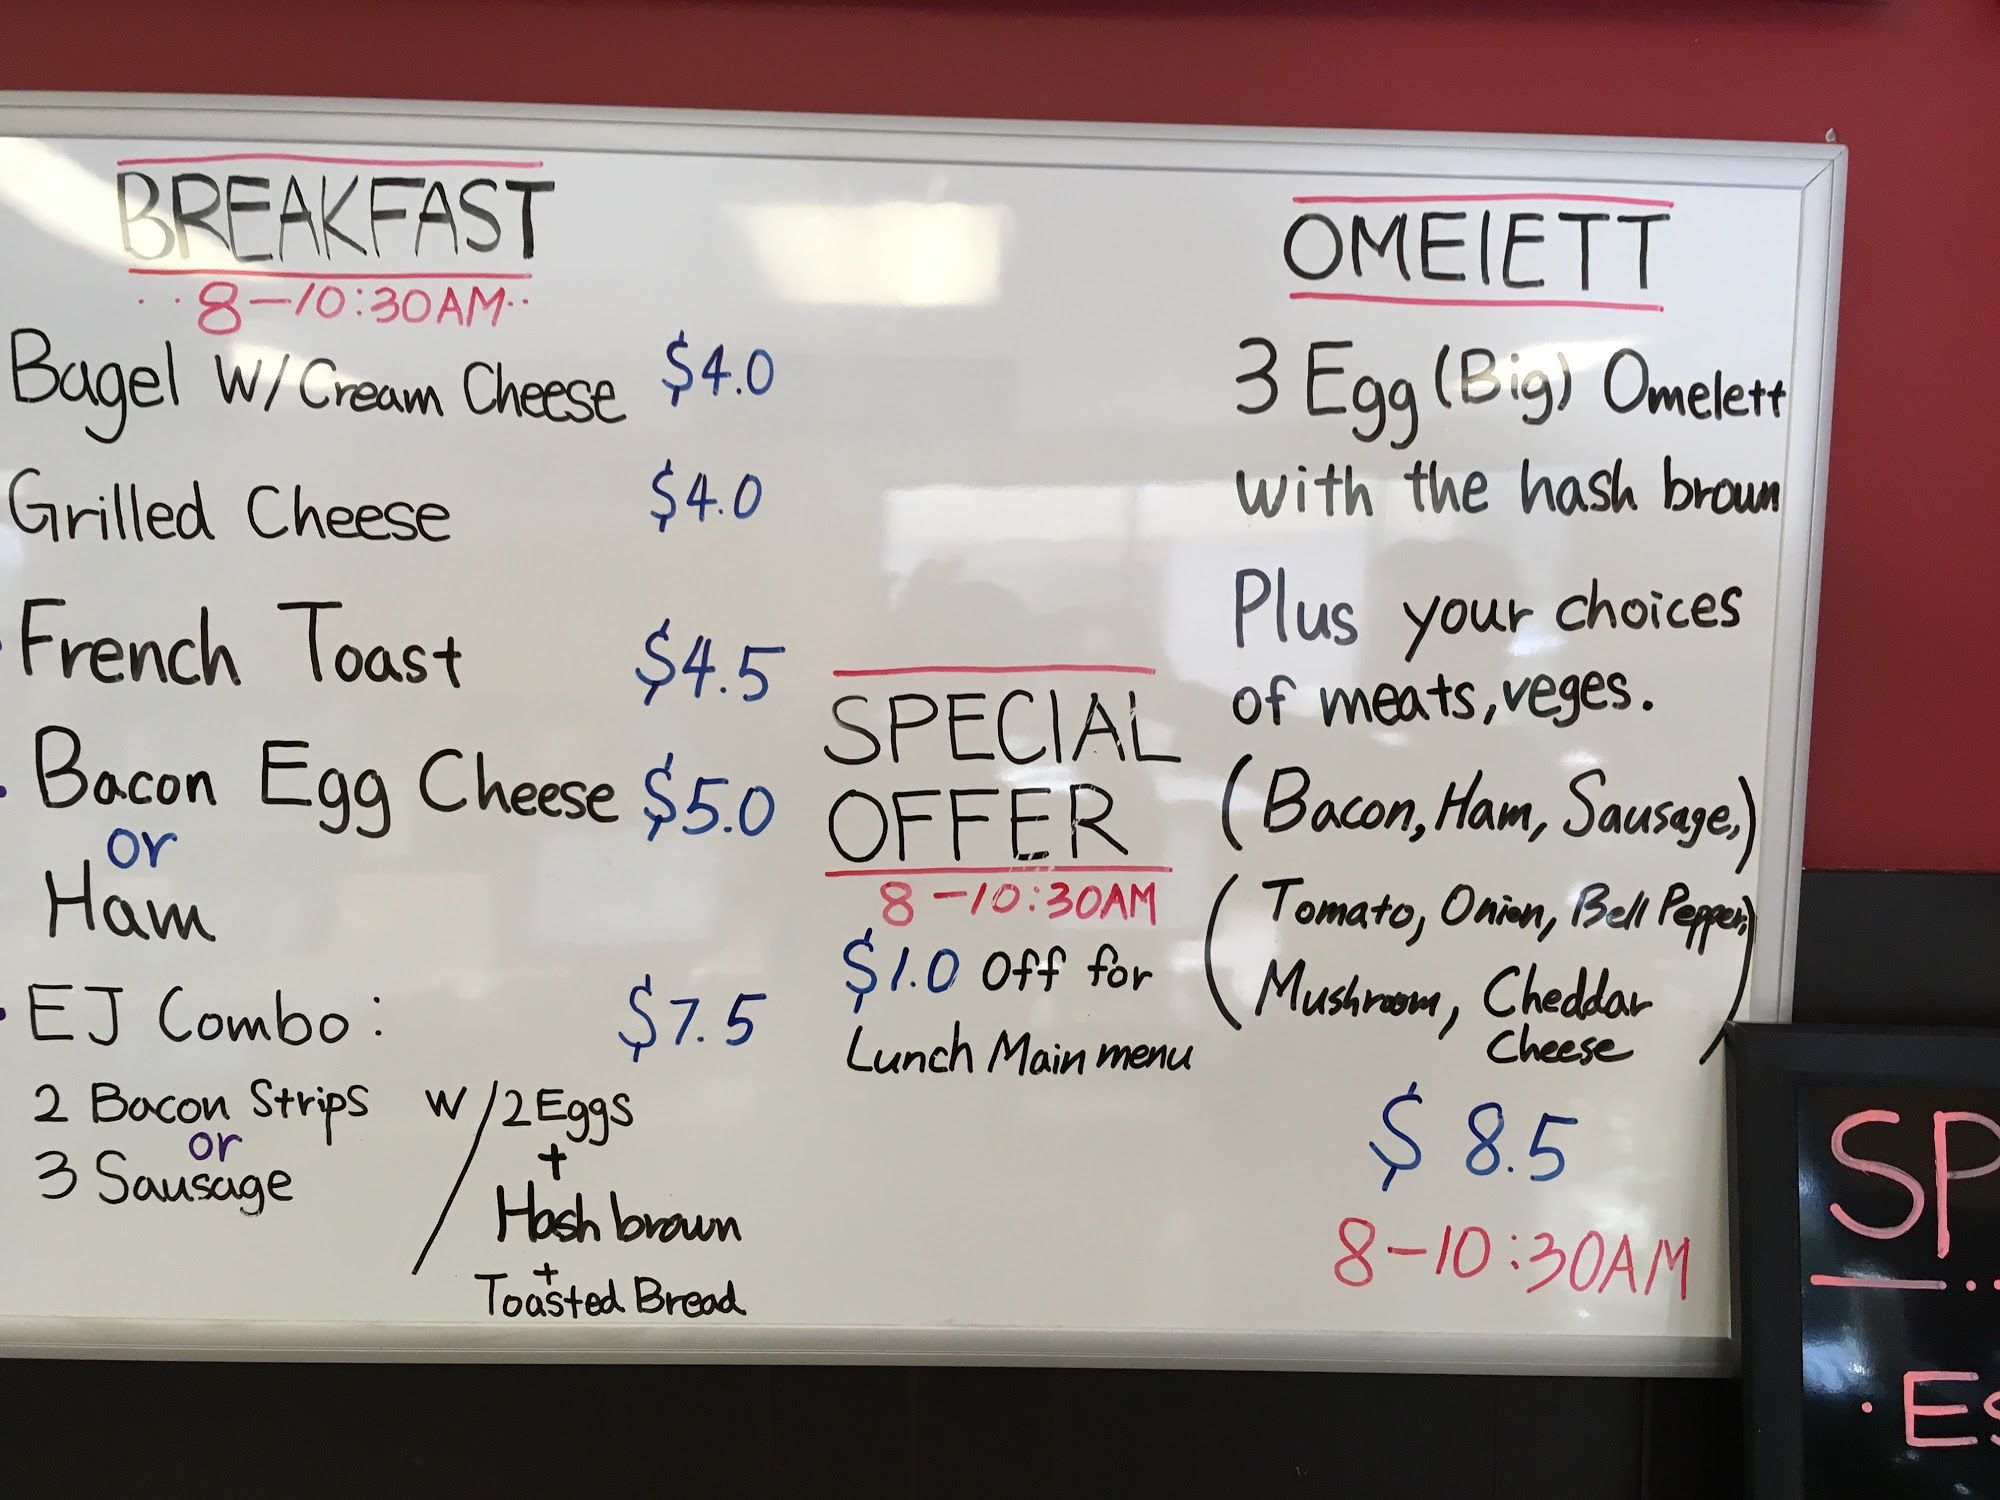 BREAKFAST
8-10:30AM
Bagel W/Cream Cheese $4.0
Grilled Cheese $4.0
French Toast $4.5
Bacon Egg Cheese $5.0
or
Ham
EJ Combo: $7.5
2 Bacon Strips W/2Eggs
or +
3 Sausage Hash brown
+
Toasted Bread
SPECIAL
OFFER
8-10:30AM
$1.0 Off for
Lunch Main menu
OMElETT
3 Egg (Big) Omelett
with the hash brown
Plus your choices
of meats, veges.
(Bacon, Ham, Sausage,)
(Tomato, Onion, Bell Pepper,
Mushroom, Cheddar
Cheese)
$8.5
8-10:30AM
SP
Es